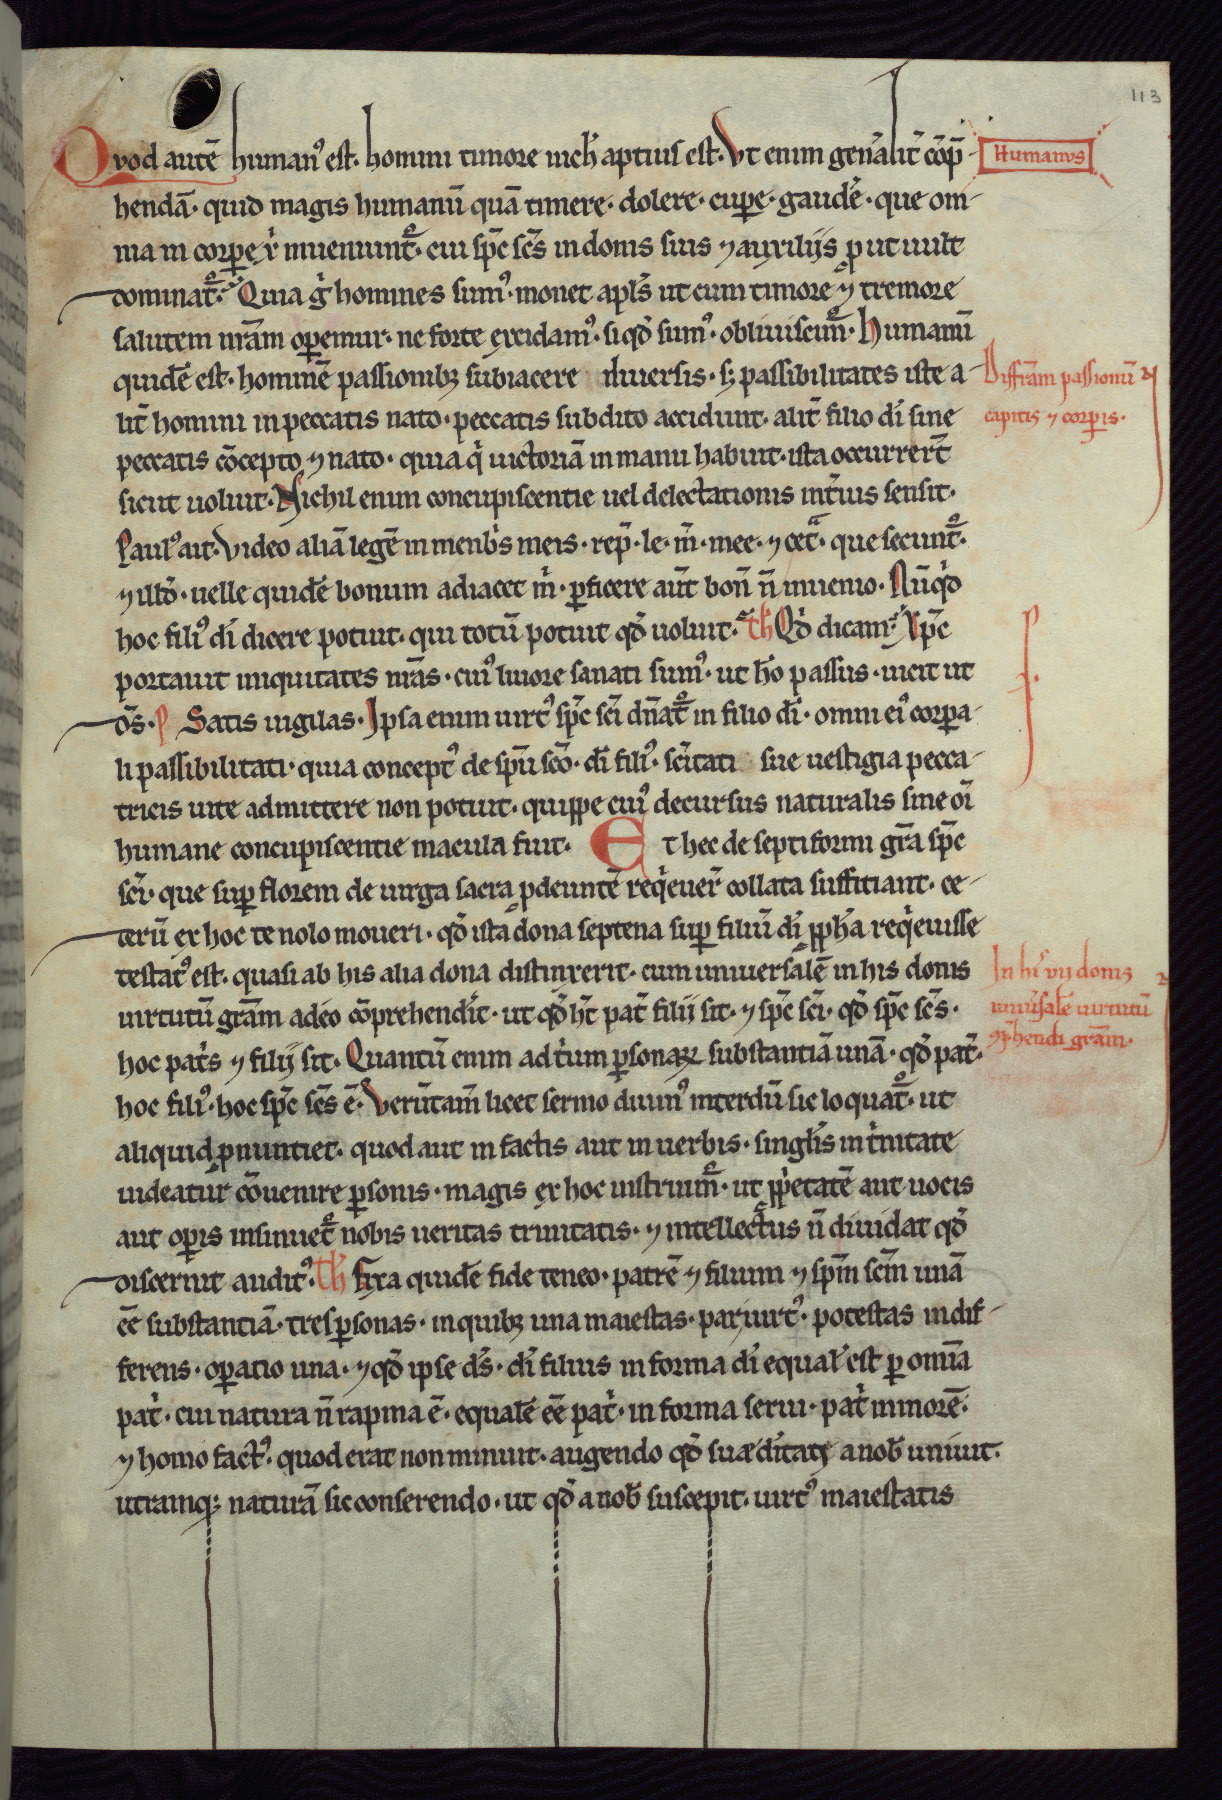 113
Quod autē humanꝰ est. homini timore nichł aptius est. Vt enim gen̄alit̄ cōp̄
Humanus
hendā. quid magis humanū quā timere. dolere. cupe. gaudē. que om
nia in corpe χ̄ͥ inueniunt᷑. cui sp̄c sc̄s in donis suis ⁊ auxiliis ꝓut uult
dominat᷑. Quia g̊ homines sumꝰ. monet apl̄s ut cum timore ⁊ tremore
salutem nr̄am oꝑemur. ne forte excidamꝰ. si qd̄ sumꝰ. obliuiscim᷑. Humanū
quidē est. hominē passionibꝫ subiacere diuersis. sꝫ passibilitates iste a
Diffr̄am passionū
lit̄ homini in peccatis nato. peccatis subdito accidunt. alit̄ filio di͞ sine
capitis ⁊ corꝑis.
peccatis cōcepto ⁊ nato. quia qͥ uictoriā in manu habuit. ista occurrer̄t
sicut uoluit. Nichil enim concupiscentie uel delectationis int̄ius sensit.
Paulꝰ ait. Video aliā legē in menbris meis. rep̄. le. m̄. mee. ⁊ cet̄. que secunt᷑.
⁊ illd̄. uelle quidē bonum adiacet m͛. ꝑficere aut̄ bon̄ n̄ inuenio. Nūqͥd
hoc filiꝰ di͞ dicere potuit. qui totū potuit qd̄ uoluit. Th̄ Qͥd dicam. Xp̄c
portauit iniquitates nr̄as. cuiꝰ liuore sanati sumꝰ. ut hō passus. uicit ut
ds̄. P Satis uigilas. Ipsa enim uirtꝰ sp̄c sc̄i dn̄at᷑ in filio di͞. omni eiꝰ corpa
li passibilitati. quia conceptꝰ de sp̄u sc̄o. di͞ filiꝰ. sc̄itati sue uestigia pecca
tricis uite admittere non potuit. quippe cuiꝰ decursus naturalis sine oī
humane concupiscentie macula fuit. Et hec de septiformi gr̄a sp̄c
sc̄i. que suꝑ florem de uirga sacra ꝓdeuntē reqͥeuer̄ collata suffitiant. ce
terū ex hoc te nolo moueri. qd̄ ista dona septena suꝑ filiū di͞ ꝓpha reqͥeuisse
testatꝰ est. quasi ab his alia dona distinxerit. cum uniuersalē in his donis
In hꝰ vij donis
uirtutū gr̄am adeo cōprehendit. ut qd̄ h̄t pat̄ filij sit. ⁊ sp̄c sc̄i. qd̄ sp̄c sc̄s.
uniu̓salē uirtutū
hoc patͥs ⁊ filij sit. Quantū enim ad tͥum ꝑsonaꝝ substantiā unā. qd̄ pat̄.
ꝯp̄hendi gr̄am.
hoc filiꝰ. hoc sp̄c sc̄s ē. Verūtam̄ licet sermo diuinꝰ interdū sic loquat᷑. ut
aliquid ꝓnuntiet. quod aut in factis aut in uerbis. singulis in tͥnitate
uideatur cōuenire ꝑsonis. magis ex hoc instruim᷑. ut ꝓpͥetatē aut uocis
aut oꝑis insinuet᷑ nobis ueritas trinitatis. ⁊ intellectus n̄ diuidat qd̄
discernit auditꝰ. Th̄ Fixa quidē fide teneo. patrē ⁊ filium ⁊ sp̄m sc̄m unā
eē substantiā. tres ꝑsonas. in quibꝫ una maiestas. par uirtꝰ. potestas indif
ferens. oꝑatio una. ⁊ qd̄ ipse ds̄. di͞ filius in forma di͞ equal̓ est ꝑ omīa
patͥ. cui natura n̄ rapina ē. equalē eē patͥ. in forma serui. patͥ minorē.
⁊ homo factꝰ. quod erat non minuit. augendo qd̄ suæ ditatꝭ a nob̄ uniuit.
utramqꝫ naturā sic conserendo. ut qd̄ a nob̄ suscepit. uirtꝰ maiestatis